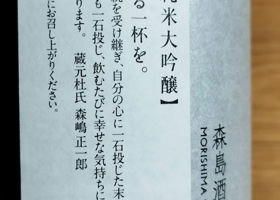 森島酒
MORISHIMA
米大吟醸】
る一杯を。
を受け継ぎ、自分の心に一石投じた末
も一石投じ、飲むたびに幸せな気持ちに
ります。 蔵元杜氏 森嶋 正一郎
にお召し上がりください。